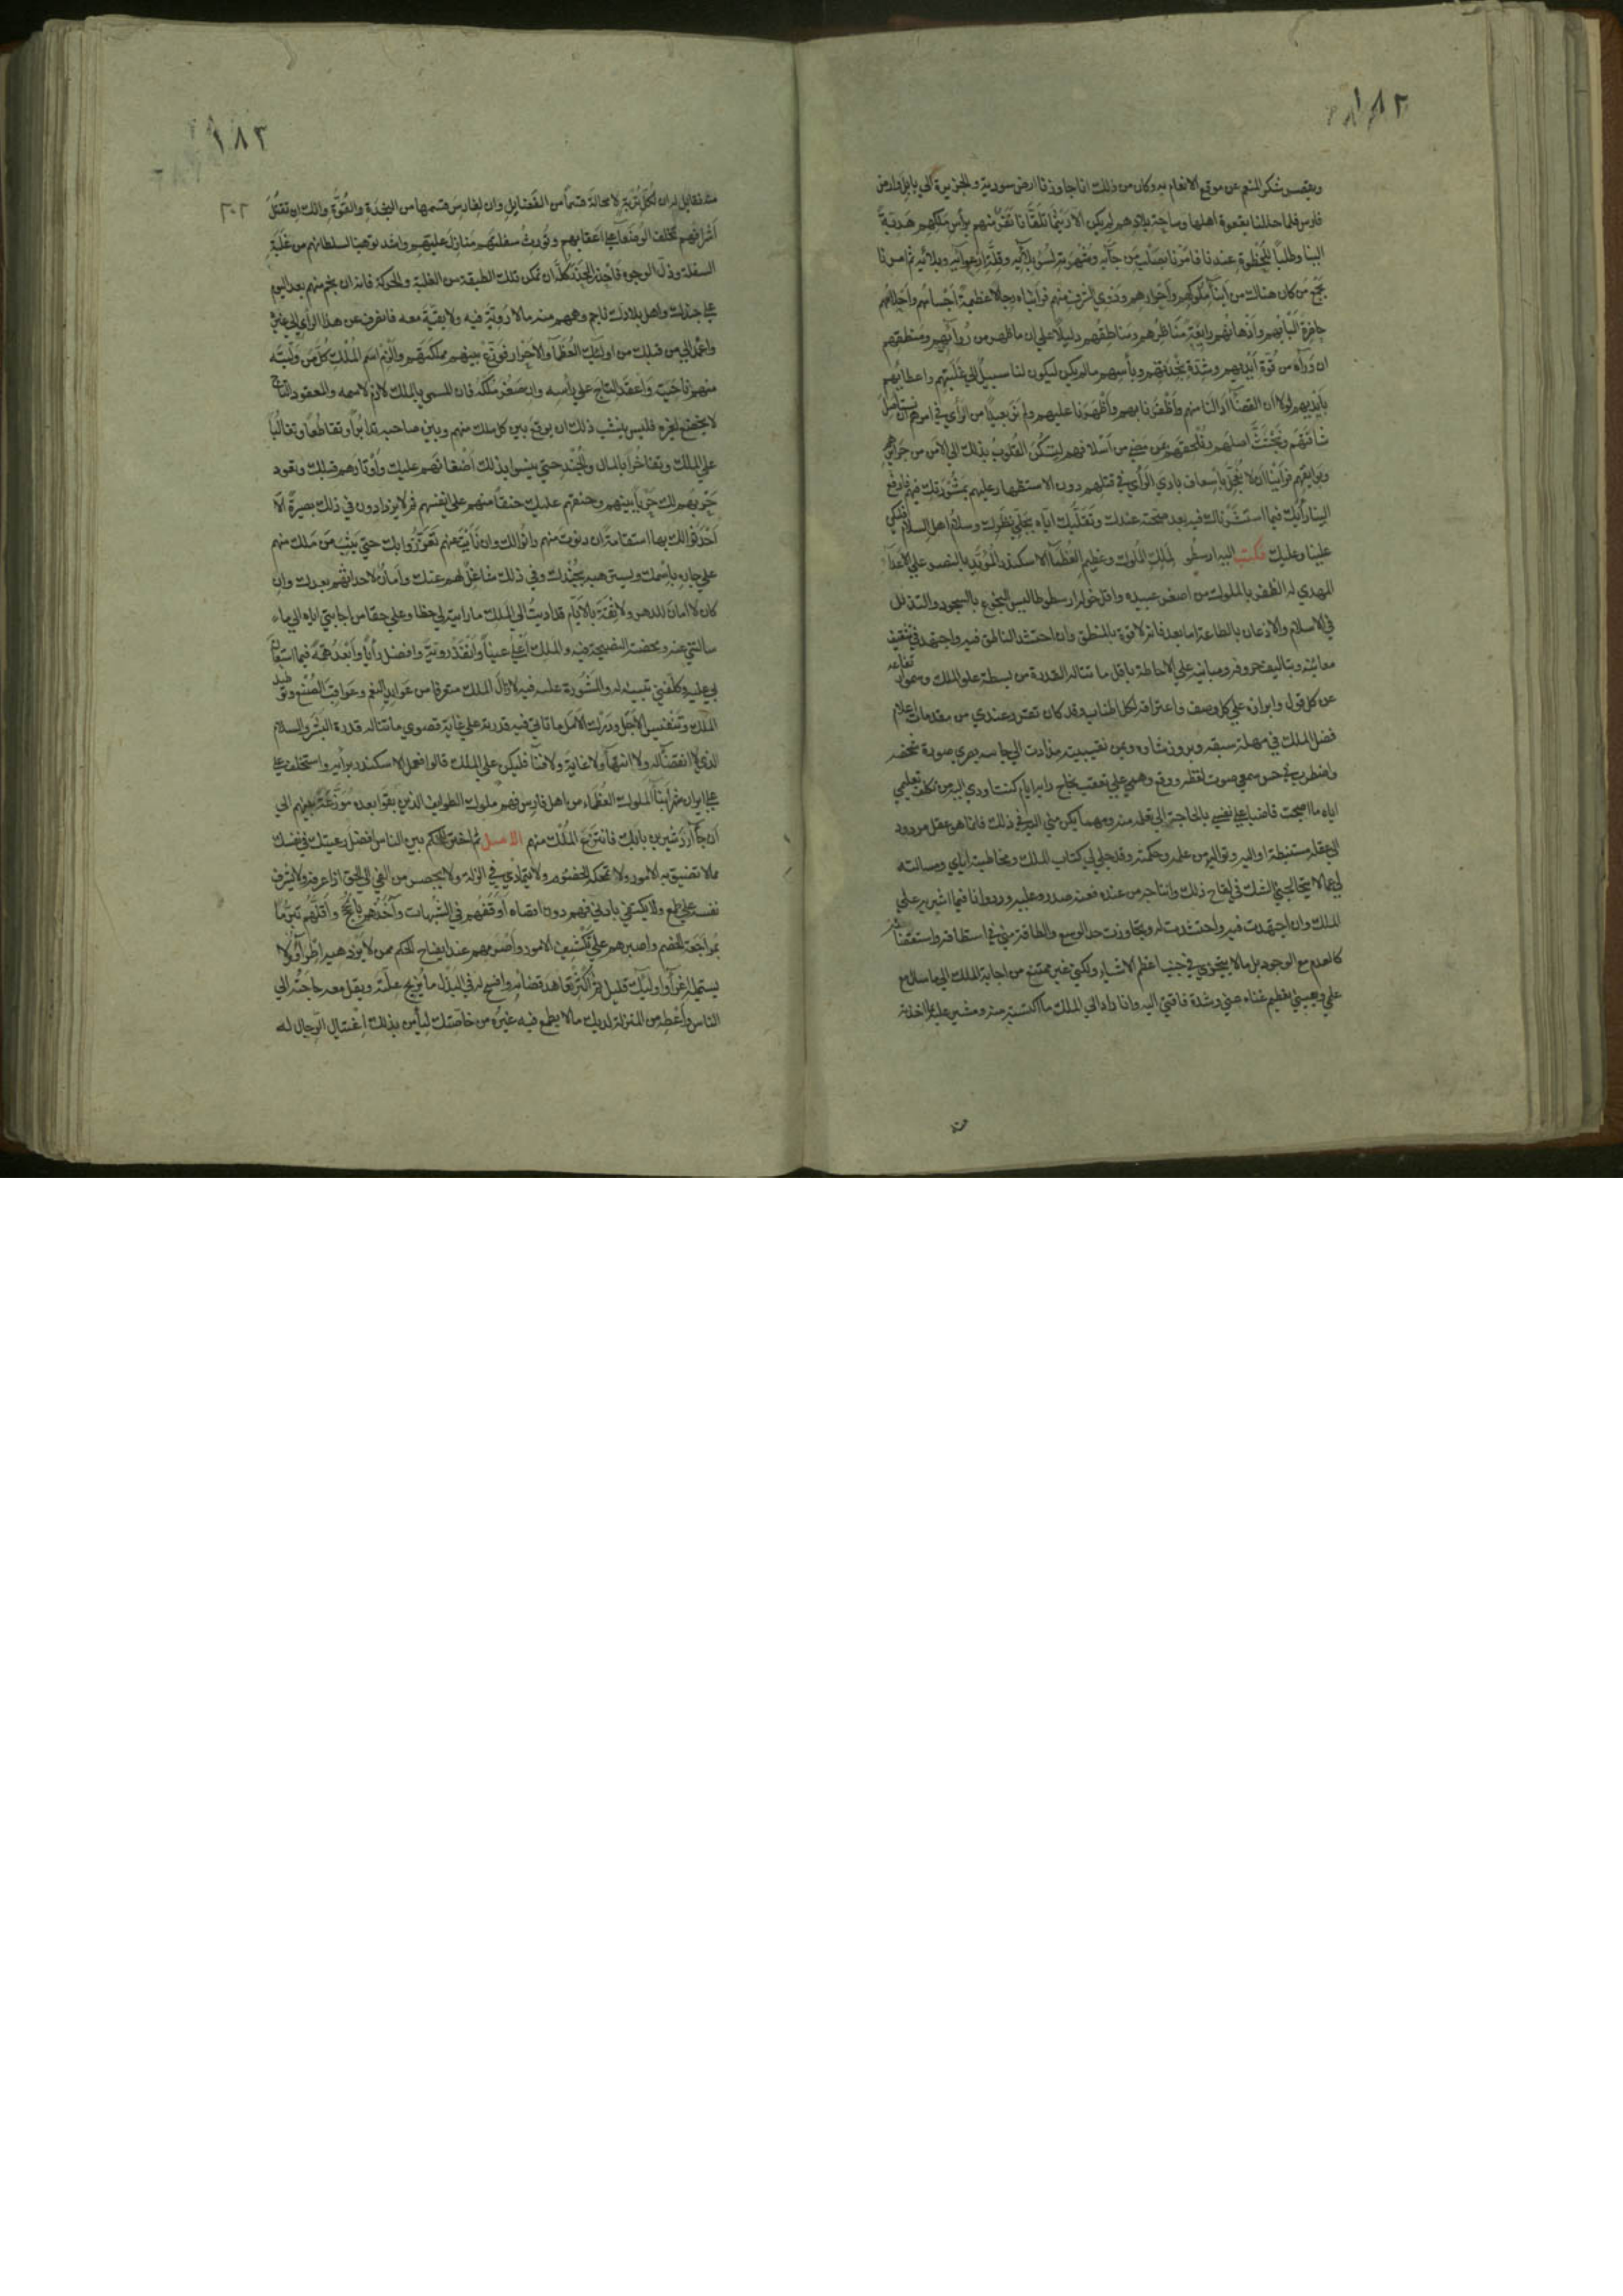 ١٨٢
ويقصر شكر المنعم عن موقع الانعام به وكان من ذلك انا جاوزنا ارض سورية والجزيرة الي بابل وارض
فارس فلما حللنا بعقوة اهلها وساحة بلادهم لم يكن الا ريثما تلقانا نفر منهم برأس ملكهم هدية
الينا وطلباً للحظوة عندنا فامرنا بصلب من جآء به وشهرته لسوء بلآئه وقلة ارعوآئه ووفائه ثم امرنا
بجمع من كان هناك من ابنآء ملوكهم واحرارهم وذوي الشرف منهم فرأيناه رجالا عظيمة اجسامهم واحلامهم
حاضرة البابهم واذهانهم رايقة مناظرهم ومناطقهم دليلا علي ان ما ظهر من روآئهم ومنطقهم
ان ورآه من قوة ايديهم وشدة نجدتهم وبأسهم ما لم يكن ليكون لنا سبيل الي غلبتهم واعطائهم
بايديهم لولا ان القضآء ادالنا منهم واظفرنا بهم واظهرنا عليهم ولم نر بعيداً من الرأي في امرهم ان نستأصل
شأفتهم ونجتث اصلهم ونلحقهم بمن مضي من اسلافهم لتسكن القلوب بذلك الي الامن من جرآئرهم
وبوايقهم فرأينا ان لا نعجل باسعاف بادي الرأي في قتلهم دون الاستظهار عليهم بمشورتك فيهم فارفع
الينا رأيك فيما استشرناك فيه بعد صحته عندك وتقليبك اياه بجلي نظرك وسلام اهل السلام فليكن
علينا وعليك فكتب اليه ارسطو لملك الملوك وعظيم العظمآء الاسكندر المؤيد بالنصر علي الاعدآء
المهدي له الظفر بالملوك من اصغر عبيده واقل خوله ارسطوطاليس البخوع بالسجود والتذلل
في الاسلام والاذعان بالطاعة اما بعد فانه لا قوة بالمنطق وان احتشد الناطق فيه واجتهد في تثقيف
معانيه وتاليف حروفه ومبانيه علي الاحاطة باقل ما تناله القدرة من بسطة علو الملك وسمو ارتفاعه
عن كل قول وابرازه علي كل وصف واغترافه لكل اطناب وقد كان تقرر عندي من مقدمات اعلام
فضل الملك في مهلة سبقه وبروز شأوه ويمن نقيبته مذ ادت الي حاسة بصري صورة شخصه
واضطرب في حس سمعي صوت لفظه ووقع وهمي علي تعقب نجاح رايه ايام كنت اودي اليه من تكلف تعليمي
اياه ما اصبحت قاضيا علي نفسي بالحاجة الي تعلمه منه ومهما يكن مني اليه في ذلك فانما هو عقل مردود
الي عقله مستنبطة اواليه وتواليه من علمه وحكمته وقد جلي لي كتاب الملك ومخاطبته اياي ومسالته
لي عما لا يتخالجني الشك في لقاح ذلك وانتاجه من عنده فعنه صدر وعليه ورد وانا فيما اشير به علي
الملك وان اجتهدت فيه واحتشدت له وتجاوزت حد الوسع والطاقة مني في استنظافه واستقصائه
كالعدم مع الوجود بل ما لا يتجزي في جنب اعظم الاشياء ولكني غير ممتنع من اجابة الملك الي ما سال مع
علمي ويقيني بعظيم غناه عني وشدة فاقتي اليه وانا راد الي الملك ما اكتسبته منه ومشير عليه بما اخذته
١٨٣
٢٠٢
منه فقايل له ان لكل تربة لا محالة قسماً من الفضايل وان لفارس قسمها من النجدة والقوة وانك ان تقتل
اشرافهم تخلف الوضعآء علي اعقابهم وتورث سفلتهم منازل عليتهم واشد توهينا لسلطانهم من غلبة
السفلة وذل الوجوه فاحذر الحذر كله ان تمكن تلك الطبقة من الغلبة والحركة فانه ان نجم منهم بعد اليوم
علي جندك واهل بلادك ناجم دهمهم منه ما لا روية فيه ولا بقية معه فانصرف عن هذا الرأي الي غيره
واعمد الي من قبلك من اولئك العظمآء والاحرار فوزع بينهم مملكتهم والزم اسم الملك كل من وليته
منهم ناحيته واعقد التاج علي رأسه وان صغر ملكه فان المسمي بالملك لازم لاسمه والمعقود التاج
لا يخضع لغيره فليس ينشب ذلك ان يوقع بين كل ملك منهم وبين صاحبه تدابراً وتقاطعاً وتغالباً
علي الملك وتفاخراً بالمال والجند حتي ينسوا بذلك اضغانهم عليك واوتارهم قبلك ويعود
حربهم لك حرباً بينهم وحنقهم عليك حنقاً منهم علي انفسهم ثم لا يزدادون في ذلك بصيرة الا
احدثوا لك بها استقامة ان دنوت منهم دانوا لك وان نأيت عنهم تعززوا بك حتي يثب من ملك منهم
علي جاره باسمك ويسترهبه بجندك وفي ذلك شاغل لهم عنك وامان لاحداثهم بعدك وان
كان لا امان للدهر ولا ثقة بالايام قد اديت الي الملك ما رايته لي حظا وعلي حقا من اجابتي اياه الي ما
سالني عنه ومحضته النصيحة فيه والملك اعلي عيناً وانفذ روية وافضل رأياً وابعد همة فيما استعان
بي عليه وكلفني تبيينه له والمشورة عليه فيه لا زال الملك متعرفا من عوايد النعم وعواقب الصنع وتوطيد
الملك وتنفيس الاجل ودرك الامل ما تاتي فيه قدرته علي غاية قصوي ما تناله قدرة البشر والسلام
الذي لا انقضآء له ولا انتهآء ولا غاية ولا فنآء فليكن علي الملك قالوا فعمل الاسكندر برأيه واستخلف علي
علي ايران شهر ابنآء الملوك العظماء من اهل فارس فهم ملوك الطوايف الذين بقوا بعده موزعة بينهم الي
ان جآء اردشير بن بابك فانتزع الملك منهم الاصل ثم اختر للحكم بين الناس افضل رعيتك في نفسك
ممن لا تضيق به الامور ولا تمحكه الخصوم ولا يتمادي في الزلة ولا يحصر من الفي الي الحق اذا عرفه ولا يشرف
نفسه علي طمع ولا يكتفي بادني فهم دون اقصاه اوقفهم في الشبهات وآخذهم بالحجج واقلهم تبرماً
بمراجعة الخصم واصبرهم علي تكشيف الامور واصرمهم عند ايضاح الحكم ممن لا يزدهيه اطرآء ولا
يستميله اغرآء واوليك قليل ثم اكثر تعاهد قضائه وافسح له في البذل ما يزيح علته ويقل معه حاجته الي
الناس واعطه من المنزلة لديك ما لا يطمع فيه غيره من خاصتك ليأمن بذلك اغتيال الرجال له